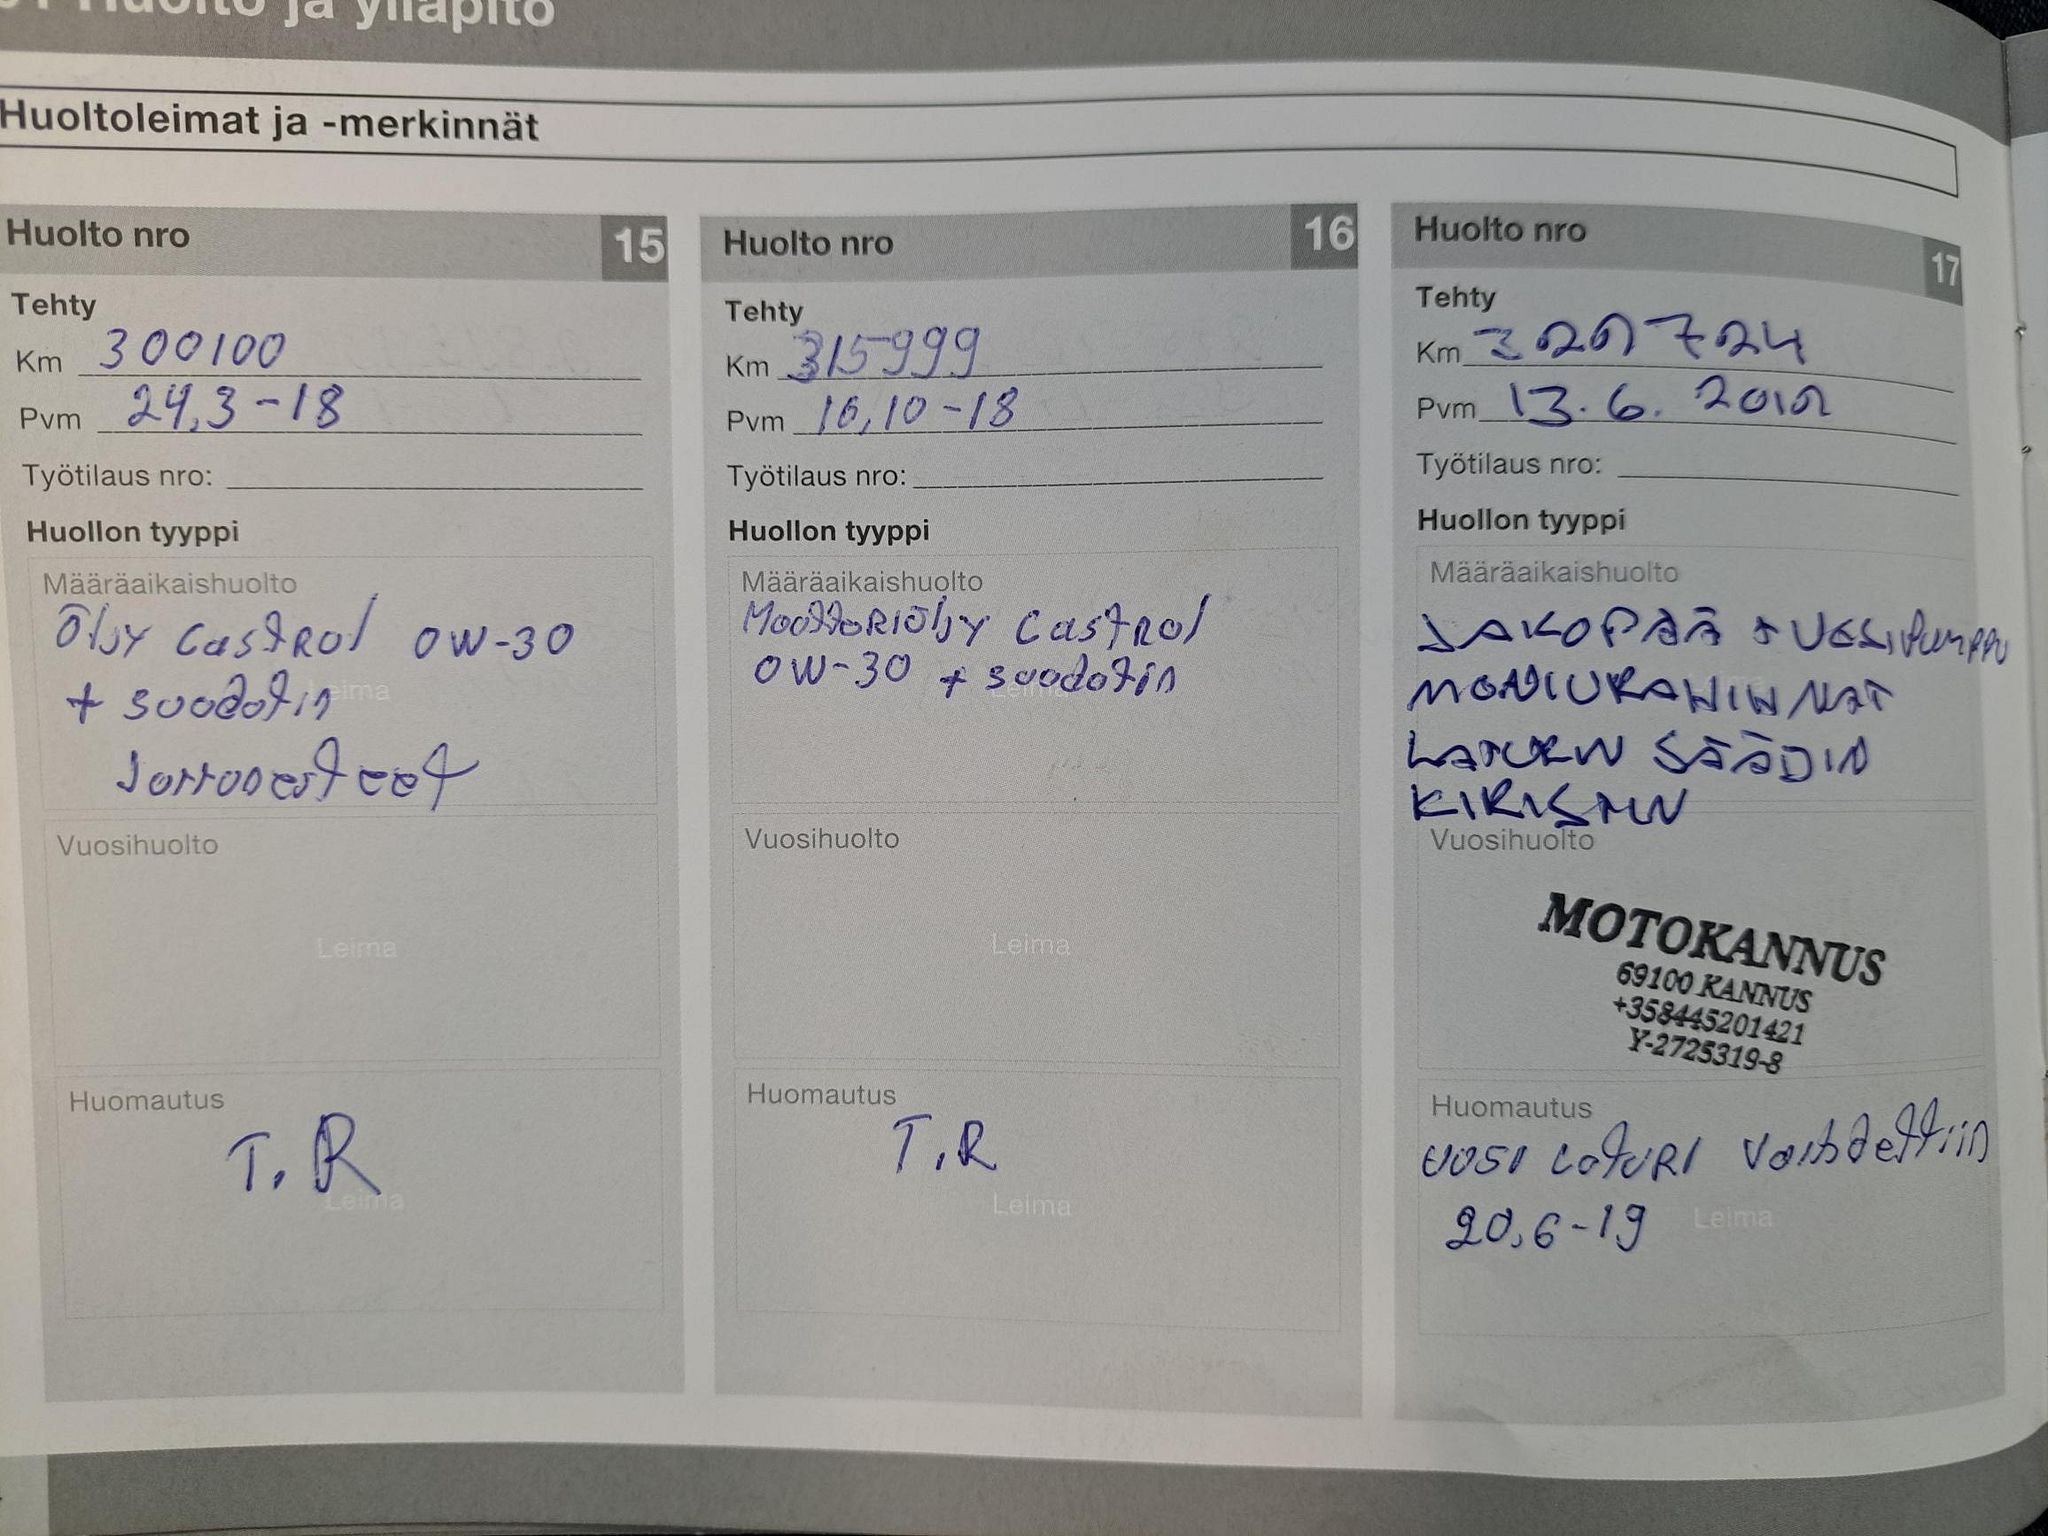 Huolto ja ylläpito
Huoltoleimat ja -merkinnät
Huolto nro 15
Tehty
Km 300100
Pvm 24,3-18
Työtilaus nro:
Huollon tyyppi
Määräaikaishuolto
Öljy Castrol 0W-30
+ suodatin
Leima
Jarrunesteet
Vuosihuolto
Leima
Huomautus
T.R
Leima
Huolto nro 16
Tehty
Km 315999
Pvm 16,10-18
Työtilaus nro:
Huollon tyyppi
Määräaikaishuolto
Moottoriöljy Castrol
0W-30 + suodatin
Vuosihuolto
Leima
Huomautus
T.R
Leima
Huolto nro 17
Tehty
Km
Pvm 13.6.
Työtilaus nro:
Huollon tyyppi
Määräaikaishuolto
JAKOPÄÄ + VESIPUMPPU
MONIURAHIHNAT
LATURIN SÄÄDIN
KIRISTIN
Vuosihuolto
MOTOKANNUS
69100 KANNUS
+358445201421
Y-2725319-8
Huomautus
uusi laturi vaihdettiin
20,6-19
Leima